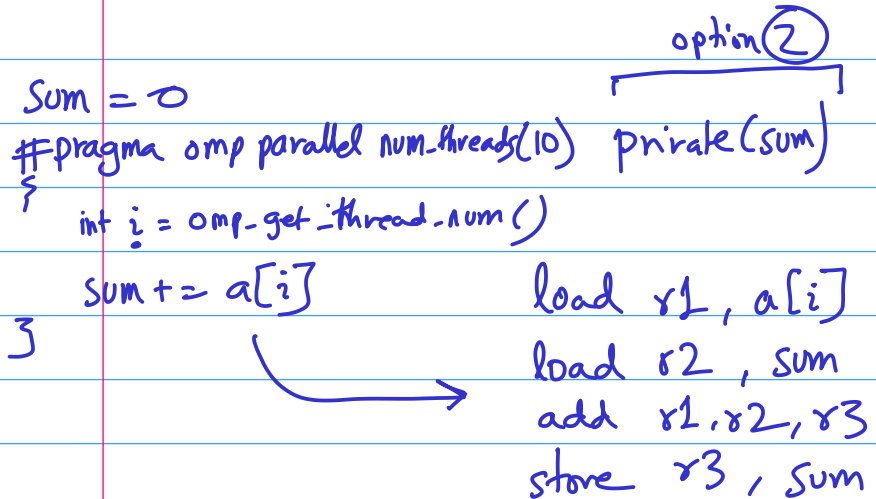 option 2
sum = 0
#pragma omp parallel num_threads(10) private(sum)
{
int i = omp_get_thread_num()
sum += a[i]
}
load r1, a[i]
load r2, sum
add r1, r2, r3
store r3, sum